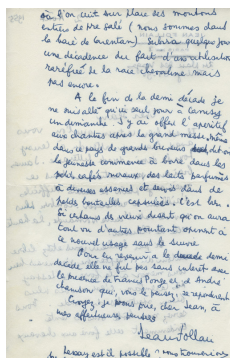 où l'on cuit sur place des moutons
entiers de pré salé (nous sommes dans
la baie de Carentan). Subira quelque jour
une décadence du fait d'une utilisation
raréfiée de la race chevaline mais
pas encore.
A la fin de la demi décade je
ne suis allé qu'un seul jour à Canisy
un dimanche. J'y ai offert l'apéritif
aux chantres après la grand messe. Même
dans ce pays de grands buveurs dit-on
la jeunesse commence à boire dans les
petits cafés ruraux, des laits parfumés
à diverses essences et servis dans de
petits bouteilles capsulées. C'est bien.
Si certains de vieux disent qu'on aura
tout vu d'autres pourtant opinent à
ce nouvel usage sans le suivre
Pour en revenir à la décade demi
décade elle ne fut pas sans intérêt avec
la présence de Francis Ponge et d'André
chanson qui, vous le pensez, se répandirent
Croyez, je vous prie, cher Jean, à
mes affectueuses pensées
Jean Follain
est il possible